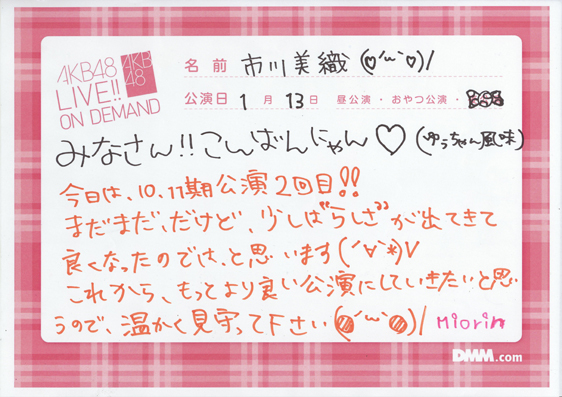 AKB48
LIVE!!
ON DEMAND
AKB
48
名前 市川美織(♡'ω'♡)/
公演日 1月13日 昼公演・おやつ公演・
みなさん!!こんばんにゃん♡(ゆうちゃん風味)
今日は、10,11期公演2回目!!
まだまだ、だけど、少しば"らしさ"が出てきて
良くなったのでは、と思います(´∀`*)V
これから、もっとより良い公演にしていきたいと思
うので、温かく見守って下さい(●'ω'●)/ Miorin
DMM.com